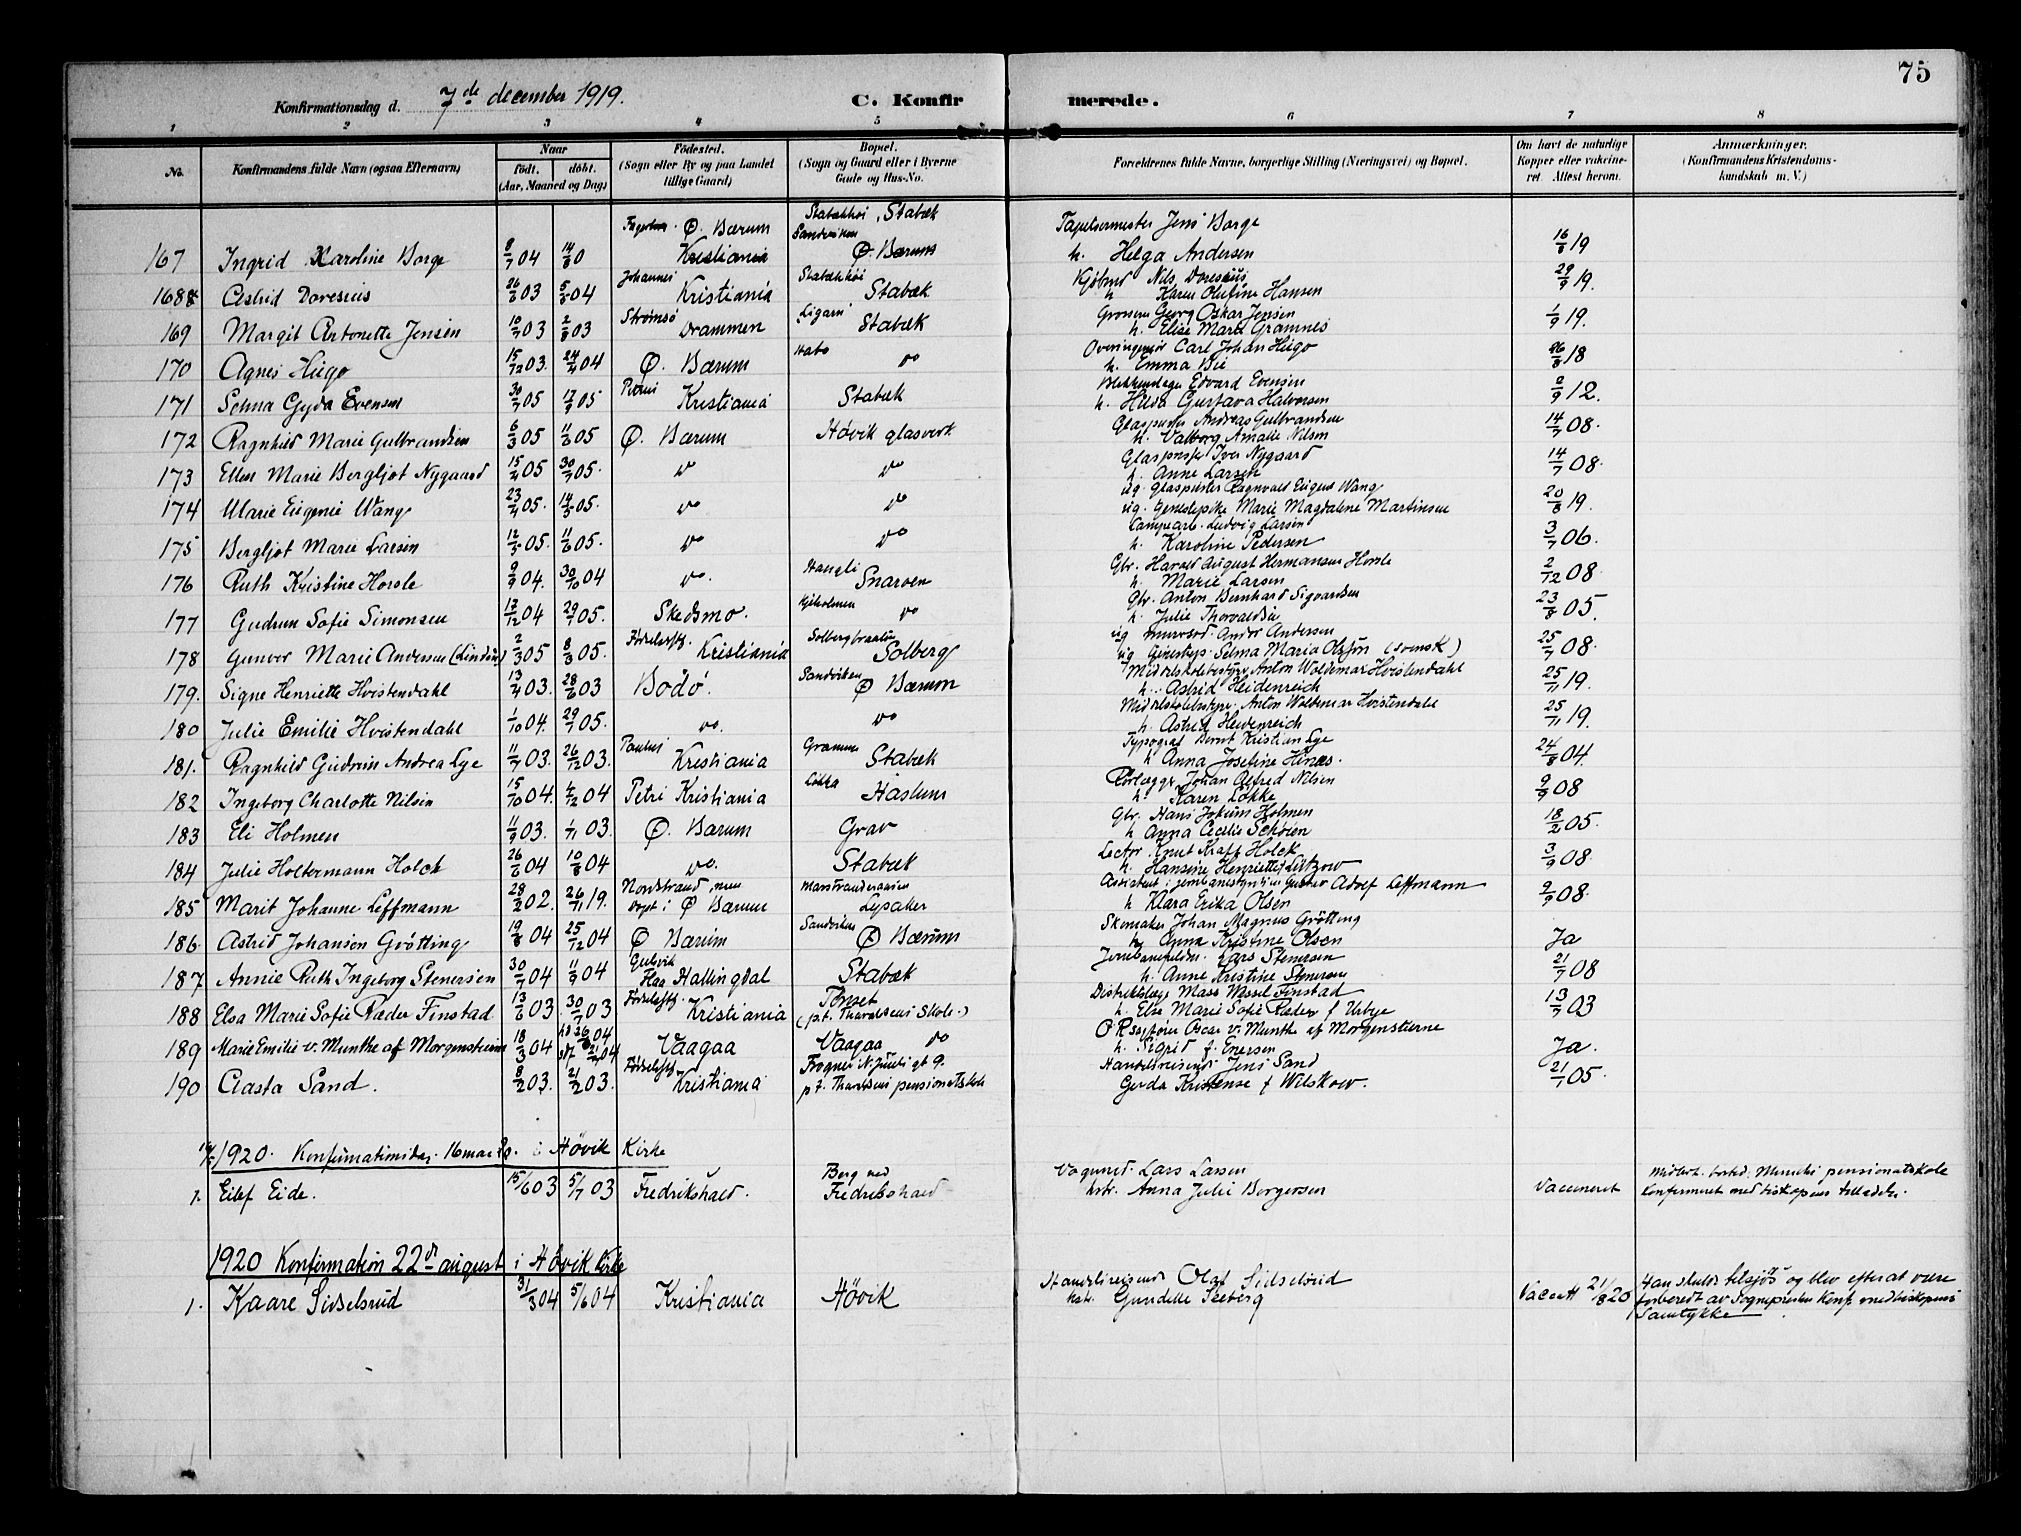 75
Konfirmationsdag d. 7de december 1919. C. Konfirmerede.
1 2 3 4 5 6 7 8
No. Konfirmandens fulde Navn (ogsaa Efternavn) Naar født. døbt. (Aar, Maaned og Dag) Fødested. (Sogn eller By og paa Landet tillige Gaard) Bopæl. (Sogn og Gaard eller i Byerne Gade og Hus-No. Forældrenes fulde Navne, borgerlige Stilling (Næringsvei) og Bopæl. Om havt de naturlige Kopper eller vakcineret. Attest herom. Anmærkninger. (Konfirmandens Kristendomskundskab m. V.)
167 Ingrid Karoline Borge 8/7 04 14/8 0 Ø. Bærum Kristiania Stabækhøi, Stabæk Sandviken Ø. Bærum Tapetsermester Jens Borge h. Helga Andersen 16/8 19
168 Astrid Doresius 26/6 03 5/5 04 Johannes Kristiania Stabækhøi Stabæk Kjøbmd Nils Doresius h Karen Olufine Hansen 29/9 19.
169 Margit Antonette Jensen 10/7 03 2/8 03 Strømsø Drammen Ligard Stabæk Grosserer Georg Oskar Jensen h. Elise Marie Gramnes 1/9 19.
170 Agnes Hugo 15/12 03. 24/4 04 Ø. Bærum Stabo do Overingeniør Carl Johan Hugo h. Emma Bie 26/8 18
171 Selma Gyda Evensen 30/7 05 17/9 05 Petrus Kristiania Stabæk Edvard Evensen h. Hilda Gustava Halvorsen 2/9 12.
172 Ragnhild Marie Gulbrandsen 6/3 05 11/6 05 Ø. Bærum Høvik glasverk Glaspuster Andreas Gulbrandsen h. Valborg Amalie Nilsen 14/7 08.
173 Ellen Marie Bergljot Nygaard 15/4 05 30/7 05. do do Glaspuster Iver Nygaard h. Anne Larsen 14/7 08.
174 Marie Eugenie Wang 23/4 05. 14/5 05. do do ug. Glaspuster Ragnvald Eugen Wang ug. Genestepike Marie Magdalene Martinsen 20/8 19.
175 Bergljot Marie Larsen 12/5 05. 11/6 05. do do Lampearb. Ludvig Larsen h. Karoline Pedersen 3/7 06.
176 Ruth Kristine Horsle 9/9 04. 30/10 04 do. Haugli Snarøen Gbr. Harald August Hermansen Horsle h. Marie Larsen 2/12 08.
177 Gudrun Sofie Simonsen 17/12 04 29/7 05. Skedsmo. Kjeholmen do Gbr. Anton Bernhard Sigvardsen h. Julie Thorvaldsen 23/8 05.
178 Gunvor Marie Andersen (Lindsø) 2/3 05 8/3 05. Fødselsstf. Kristiania Solbergbraaten Solberg ug murersv. Andor Andersen ug Genestep. Selma Maria Olsson (svensk) 25/7 08.
179. Signe Henriette Hvistendahl 13/4 03. 28/6 03 Bodø. Sandviken Ø Bærum Middelskolebestyrer Anton Woldemar Hvistendahl h. Astrid Heidenreich 25/11 19.
180 Julie Emilie Hvistendahl 1/10 04. 29/7 05. do. do Middelskolebestyrer. Anton Woldemar Hvistendahl h. Astrid Heidenreich 25/11 19.
181. Ragnhild Gudrun Andrea Lye 11/7 03. 26/12 03. Paulus Kristiania Gramme Stabæk Typograf Bernt Kristian Lye h Anna Josefine Hines. 24/8 04.
182 Ingeborg Charlotte Nilsen 15/10 04. 4/12 04 Petri Kristiania Løkka Haslum Rørlægger Johan Alfred Nilsen h. Karen Løkke 9/9 08
183 Eli Holmen 11/9 03. 1/11 03. Ø. Bærum Grav Gbr. Hans Jokum Holmen h Anna Cecilie Schøien 18/2 05.
184 Julie Holtermann Holck 26/6 04 10/8 04 do. Stabæk Lector Knut Kraft Holck h. Hansine Henriette Lützow 3/9 08.
185 Marit Johanne Leffmann 28/2 02. 26/11 19. Nordstrand, men døpt i Ø Bærum Marstranderassen Lysaker Assistent i jernbanestyrelsen Gustav Adolf Leffmann h Klara Erika Olsen 9/9 08.
186. Astrid Johansen Grøtting 19/8 04 25/12 04 Ø Bærum Sandviken Ø Bærum Skomaker Johan Magnus Grøtting h. Anna Kristine Olsen Ja
187 Annie Ruth Ingeborg Stenersen 30/7 04 11/9 04 Gulsvik Flaa Hallingdal Stabæk Lars Stenersen h. Anne Kristine Stenersen 21/7 08
188 Elsa Marie Sofie Ræder Finstad 13/6 03 30/7 03 Fødselsstf. Kristiania Tønset (p.t. Thavdsens Skole.) Distriktslæge Mass Wessel Finstad h. Else Marie Sofie Ræder f Urbye 13/7 03
189 Marie Emilie v. Munthe af Morgenstierne 18/3 04 hd 26/8 04 Vaagaa Vaagaa do O.R.sagfører Oscar v. Munthe af Morgenstierne h. Sigrid f. Enersen Ja.
190 Aasta Sand. 8/2 03. 21/2 03. Fødselsstf. Kristiania Frogner N. Juels gt 9. p.t. Thavdsens pensionatskole Handelsreisende Jens Sand Gerda Kristense f Wilskow. 21/1 05.
1920. Konfirmationsdag. 16 mai i Høvik Kirke
1. Eilef Eide. 15/6 03 5/7 03 Fredrikshald. Berg ved Fredrikshald Vognmd. Lars Larsen hstr. Anna Julie Borgersen Vaccineret Midlert. bosted: Munchs pensionatskole Konfirmeret med biskopens tilladelse.
1920 Konfirmation 22de august i Høvik Kirke
1. Kaare Sidselrud 31/3 04 5/6 04 Kristiania Høvik Handelsreisende Olaf Sidselrud hstr. Gundelle Seeberg Vaccatt 21/8 20 Han skulde tilsjøs og blev efter at være forberedt av Sognepresten konf. med biskopens Samtykke.